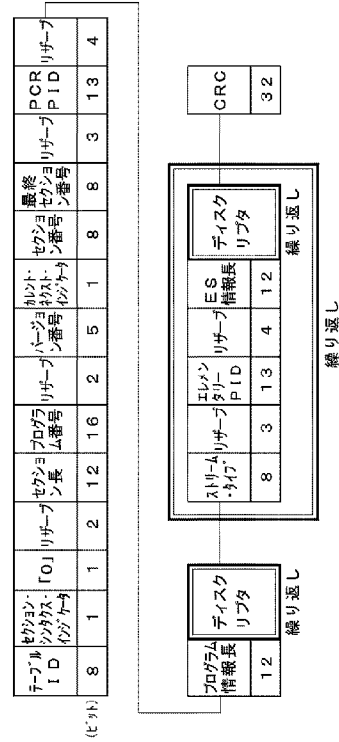 テーブルID
セクション・シンタクス・インジケータ
「0」
リザーブ
セクション長
プログラム番号
リザーブ
バージョン番号
カレント・ネクスト・インジケータ
セクション番号
最終セクション番号
リザーブ
PCR PID
リザーブ
(ビット)
8
1
1
2
12
16
2
5
1
8
8
3
13
4
プログラム情報長
12
ディスクリプタ
繰り返し
ストリーム・タイプ
リザーブ
エレメンタリーPID
リザーブ
ES情報長
8
3
13
4
12
ディスクリプタ
繰り返し
繰り返し
CRC
32